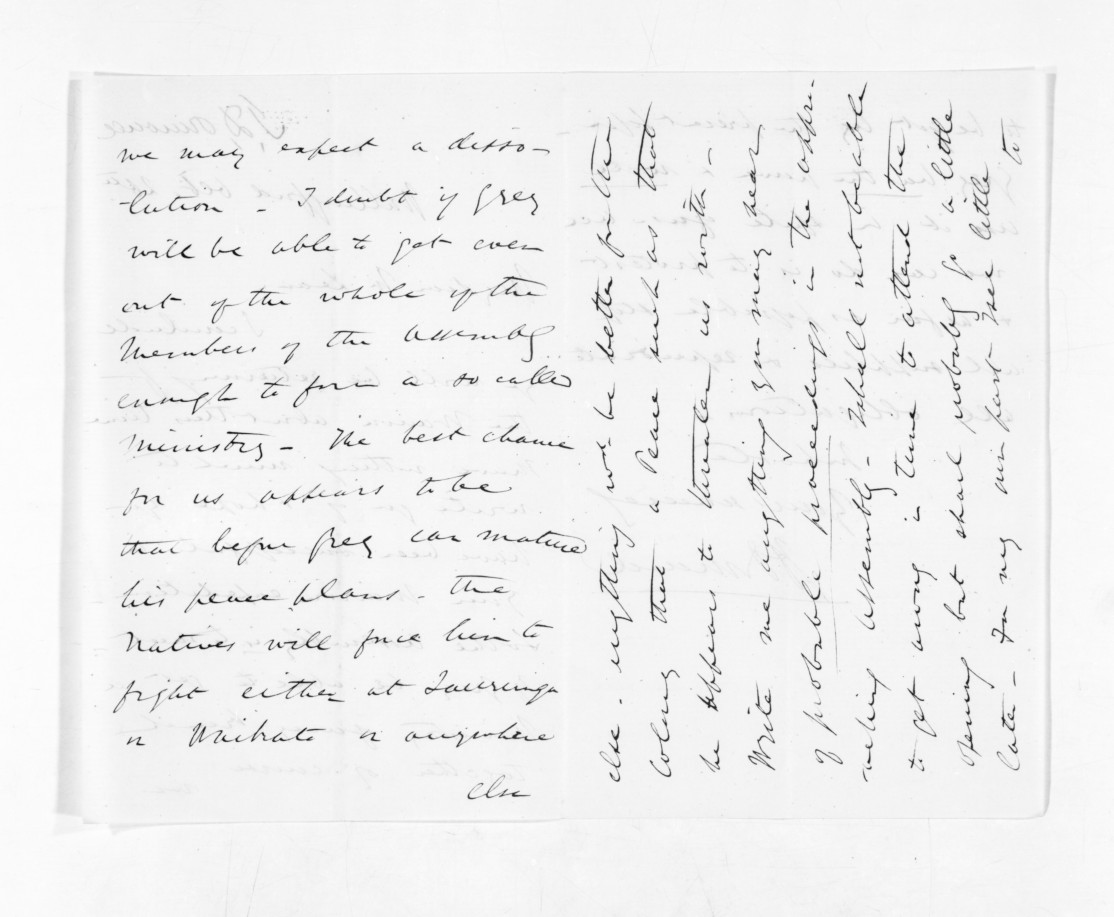 we may expect a disso-
-lution - I doubt if Grey
will be able to get even
out of the whole of the
Members of the Assembly
enough to form a so called
Ministry - The best chance
for us appears to be
that before Grey can mature
his peace plans - the
Natives will force him to
fight either at Tauranga
or Waikato or anywhere
else
else - anything wd. be better for the
Colony than a Peace such as that
he appears to threaten us with -
Write me anything you may hear
of probable proceedings in the appro-
aching Assembly - I shall not be able
to get away in time to attend the
opening but shall probably go a little
late - For my own part I see little to